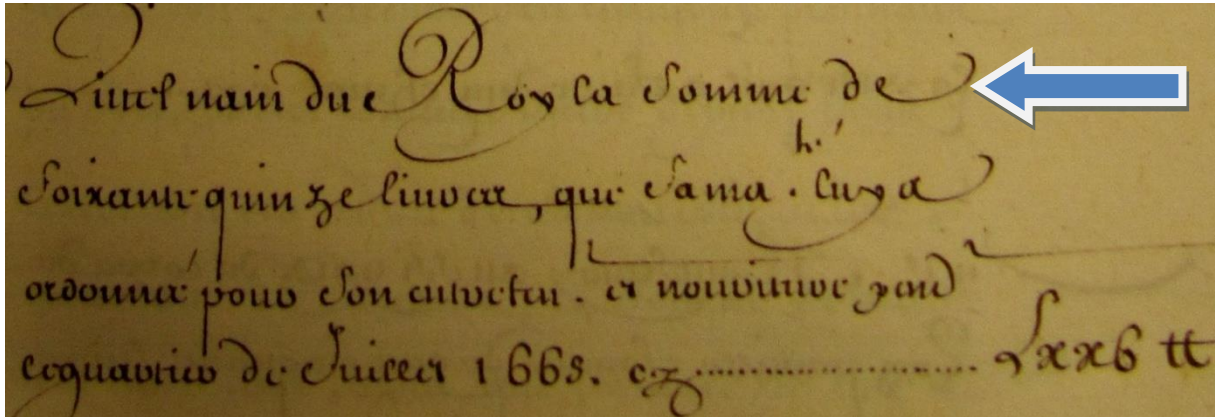 nain du Roy la somme de
soixante quinze livres, que sa ma.té luy a
ordonné pour son entretien. et nourriture pend
le quartier de Juillet 1668. cy .................... Lxxv tt